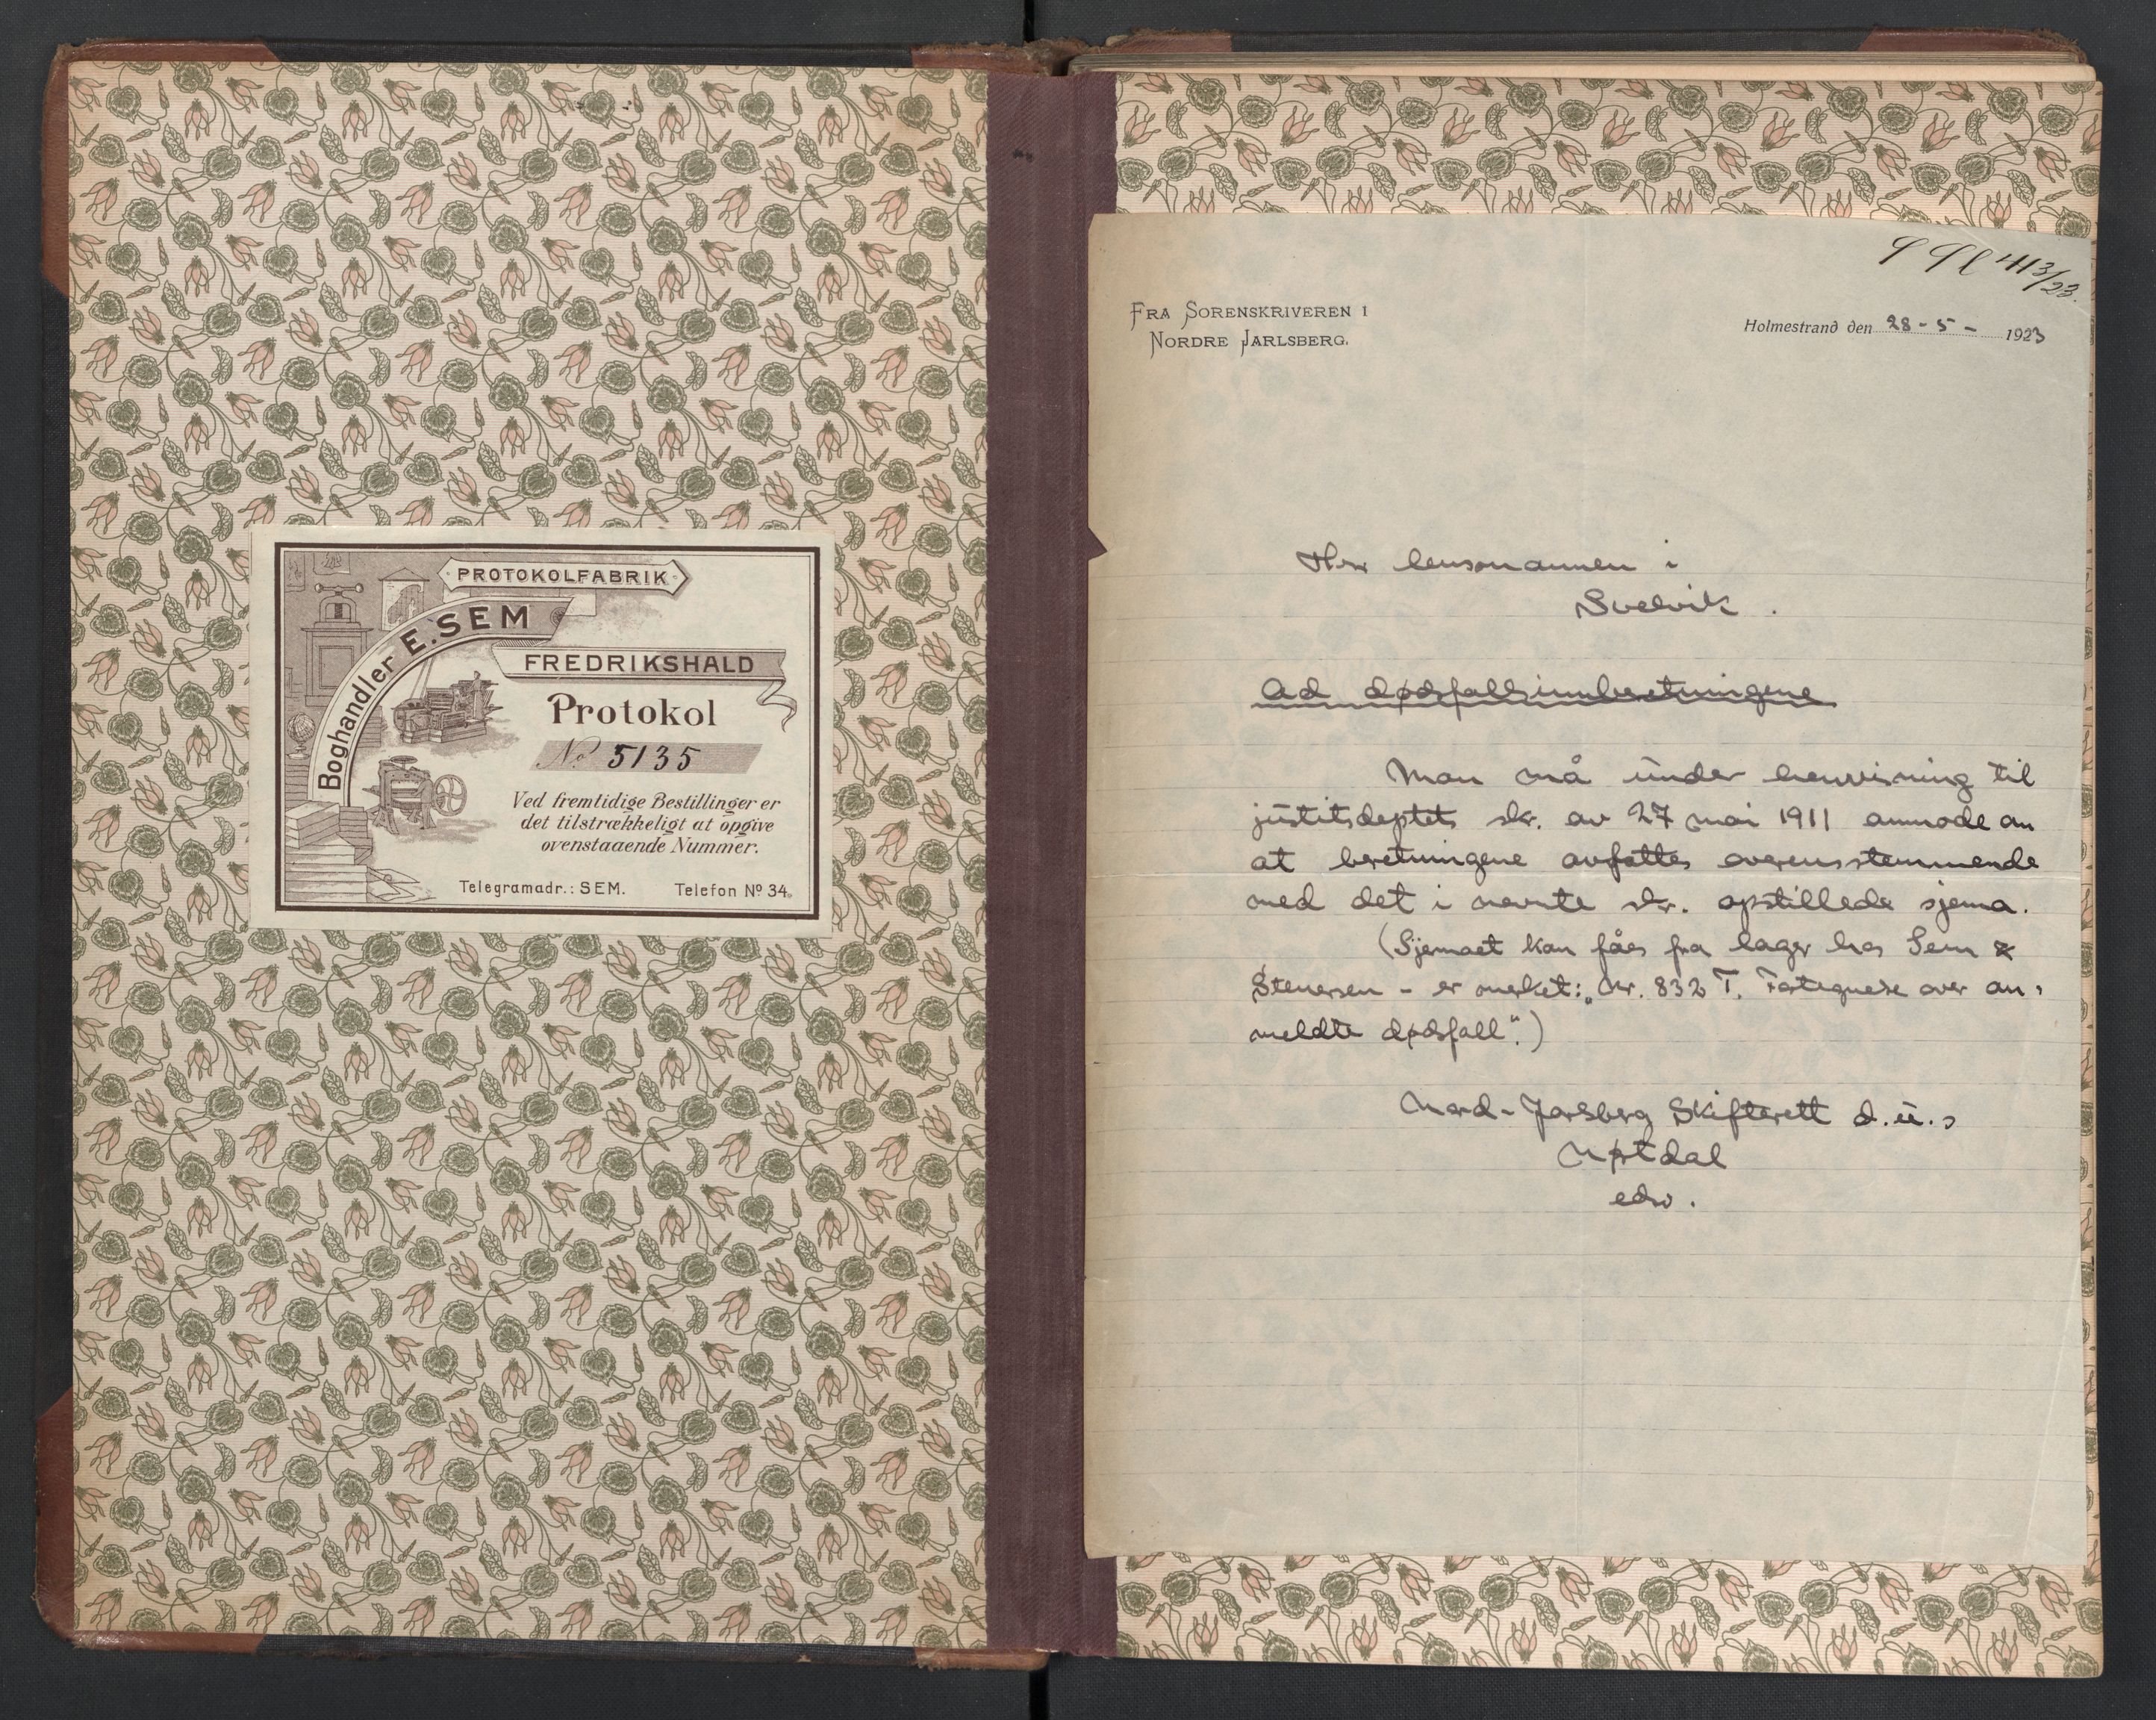 PROTOKOLFABRIK
Boghandler E. SEM
FREDRIKSHALD
Protokol
No 5135
Ved fremtidige Bestillinger er
det tilstrækkeligt at opgive
ovenstaaende Nummer.
Telegramadr.: SEM. Telefon No 34.
413/23.
FRA SORENSKRIVEREN I
NORDRE JARLSBERG.
Holmestrand den 28-5- 1923
Herr lensmannen i
Svelvik.
Ad dødsfallsinnberetningene
Man må under henvisning til
justitsdeptets skr. av 27 mai 1911 anmode om
at beretningene avfattes overensstemmende
med det i nevnte skr. opstillede sjema.
(Sjemaet kan fåes fra lager hos Sem &
Stenersen - er merket: „Nr. 832 T. Fortegnelse over an-
meldte dødsfall".)
Nord-Jarlsberg Skifterett d.u.s
edsv.